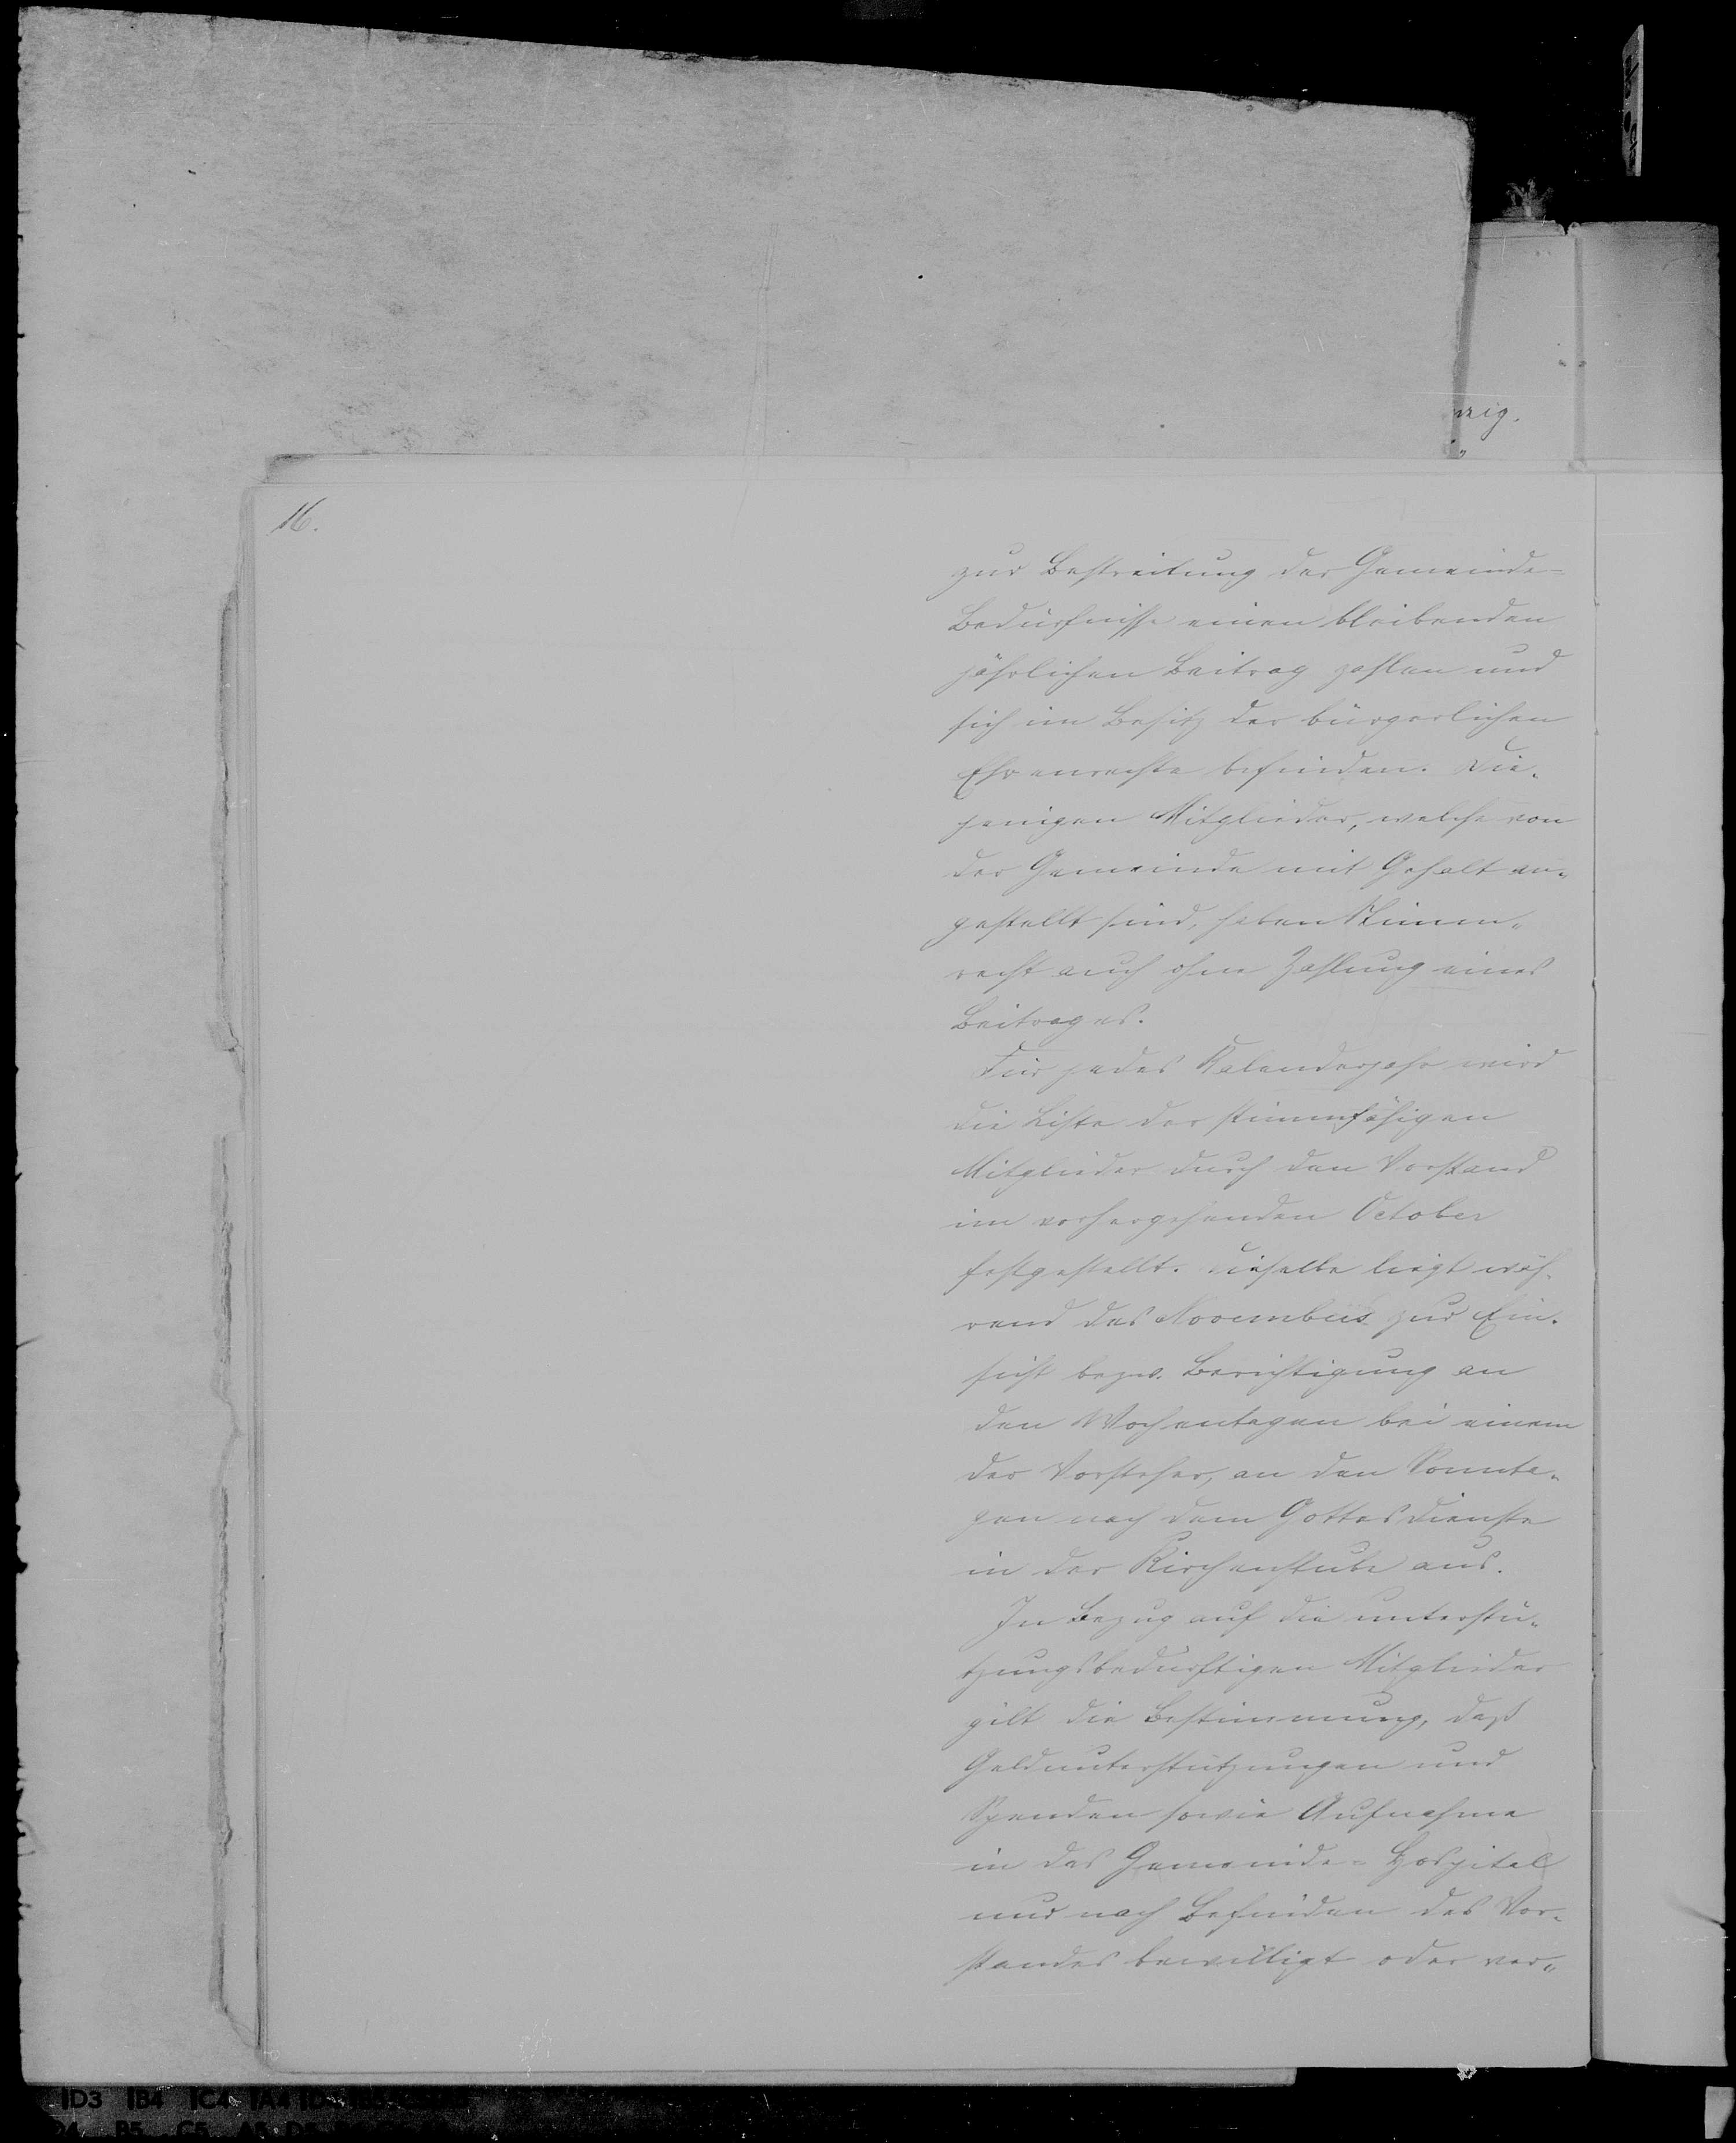 nzig.
"
16.
zur Bestreitung der Gemeinde-
Bedürfnisse einen bleibenden
jährlichen Beitrag zahlen und
sich im Besitz der bürgerlichen
Ehrenrechte befinden. Die-
jenigen Mitglieder, welche von
der Gemeinde mit Gehalt an-
gestellt sind, haben Stimm-
recht auch ohne Zahlung eines
Beitrages.
Für jedes Kalenderjahr wird
die Liste der stimmfähigen
Mitglieder durch den Vorstand
im vorhergehenden October
festgestellt. Dieselbe liegt wäh-
rend des Novembers zur Ein-
sicht bezw. Berichtigung an
den Wochentagen bei einem
der Vorsteher, an den Sonnta-
gen nach dem Gottesdienste
in der Kirchenstube aus.
In Bezug auf die unterstü-
tzungsbedürftigen Mitglieder
gilt die Bestimmung, daß
Geldunterstützungen und
Spenden sowie Aufnahme
in das Gemeinde-Hospital
nur nach Befinden des Vor-
standes bewilligt oder ver-
D3 B4 C4 A4
B5 C5 A5 D5